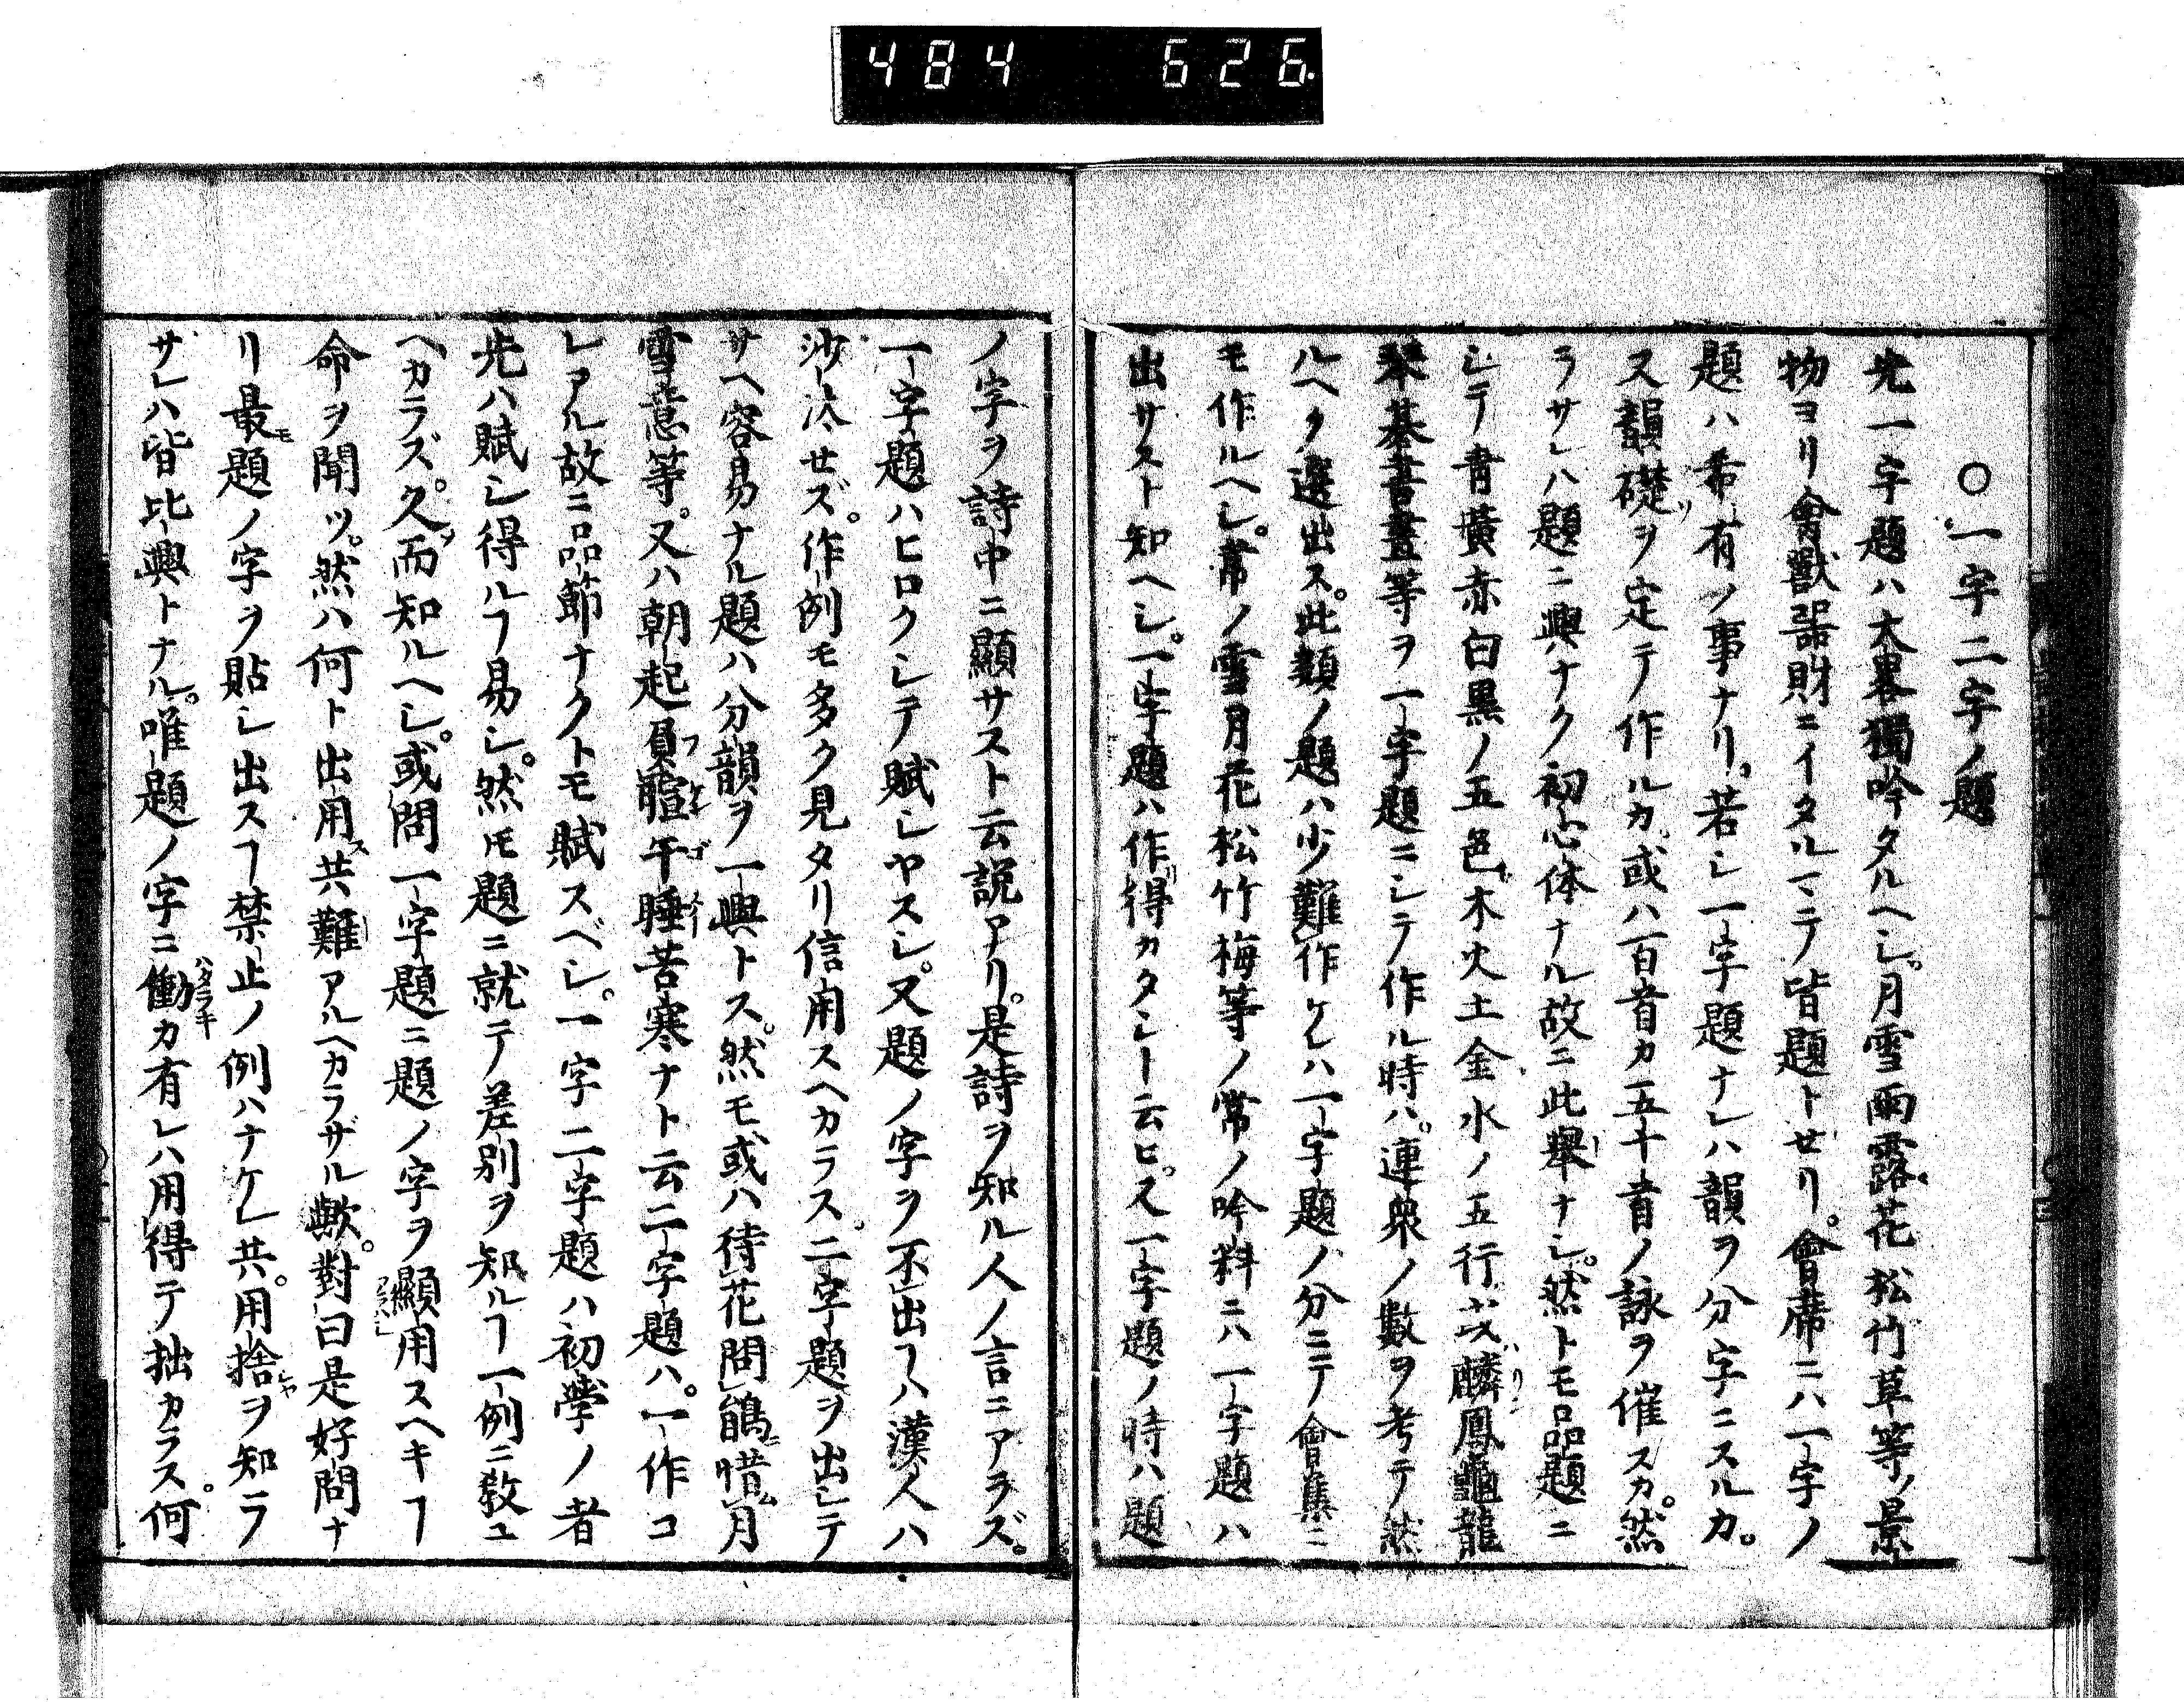 484 626
○一字二字ノ題
先一字題ハ大畧獨吟タルヘシ。月雪雨露花松竹草等ノ景
物ヨリ禽獸器財ニイタルマテ皆題トセリ。會席ニハ一字ノ
題ハ希有ノ事ナリ。若シ一字題ナレハ韻ヲ分字ニスルカ。
ス韻礎ヲ定テ作ルカ。或ハ百首カ五十首ノ詠ヲ催スカ。然
ラサレハ題ニ興ナク初心体ナル故ニ此舉ナシ。然トモ品題ニ
シテ青黄赤白黒ノ五色木火土金水ノ五行或麟鳳龜龍
琴棊書畫等ヲ一字題ニシテ作ル時ハ。連衆ノ數ヲ考テ然
ルヘク選出ス。此類ノ題ハ少難作ケレハ一字題ノ分ニテ會集ニ
モ作ルヘシ。常ノ雪月花松竹梅等ノ常ノ吟料ニハ一字題ハ
出サスト知ヘシ。一字題ハ作得カタシト云ヒ。又一字題ノ時ハ題
ノ字ヲ詩中ニ顯サスト云説アリ。是詩ヲ知ル人ノ言ニアラズ。
一字題ハヒロクシテ賦シヤスシ。又題ノ字ヲ不出ヿハ漢人ハ
沙汰セズ。作例モ多ク見タリ信用スヘカラス。二字題ヲ出シテ
サヘ容易ナル題ハ分韻ヲ一興トス。然モ或ハ待花問鵑惜月
雪意等。又ハ朝起負暄午睡苦寒ナト云二字題ハ。一作コ
レアル故ニ品節ナクトモ賦スベシ。一字二字題ハ初學ノ者
先ハ賦シ得ルヿ易シ。然モ題ニ就テ差別ヲ知ルヿ一例ニ敎ユ
ヘカラズ。久而知ルヘシ。或問一字題ニ題ノ字ヲ顯用スヘキヿ
命ヲ聞ツ。然ハ何ト出用共難アルヘカラザル歟。對曰是好問ナ
リ最題ノ字ヲ貼シ出スヿ禁止ノ例ハナケレ共。用捨ヲ知ラ
サレハ皆比興トナル。唯題ノ字ニ働カ有レハ用得テ拙カラス。何